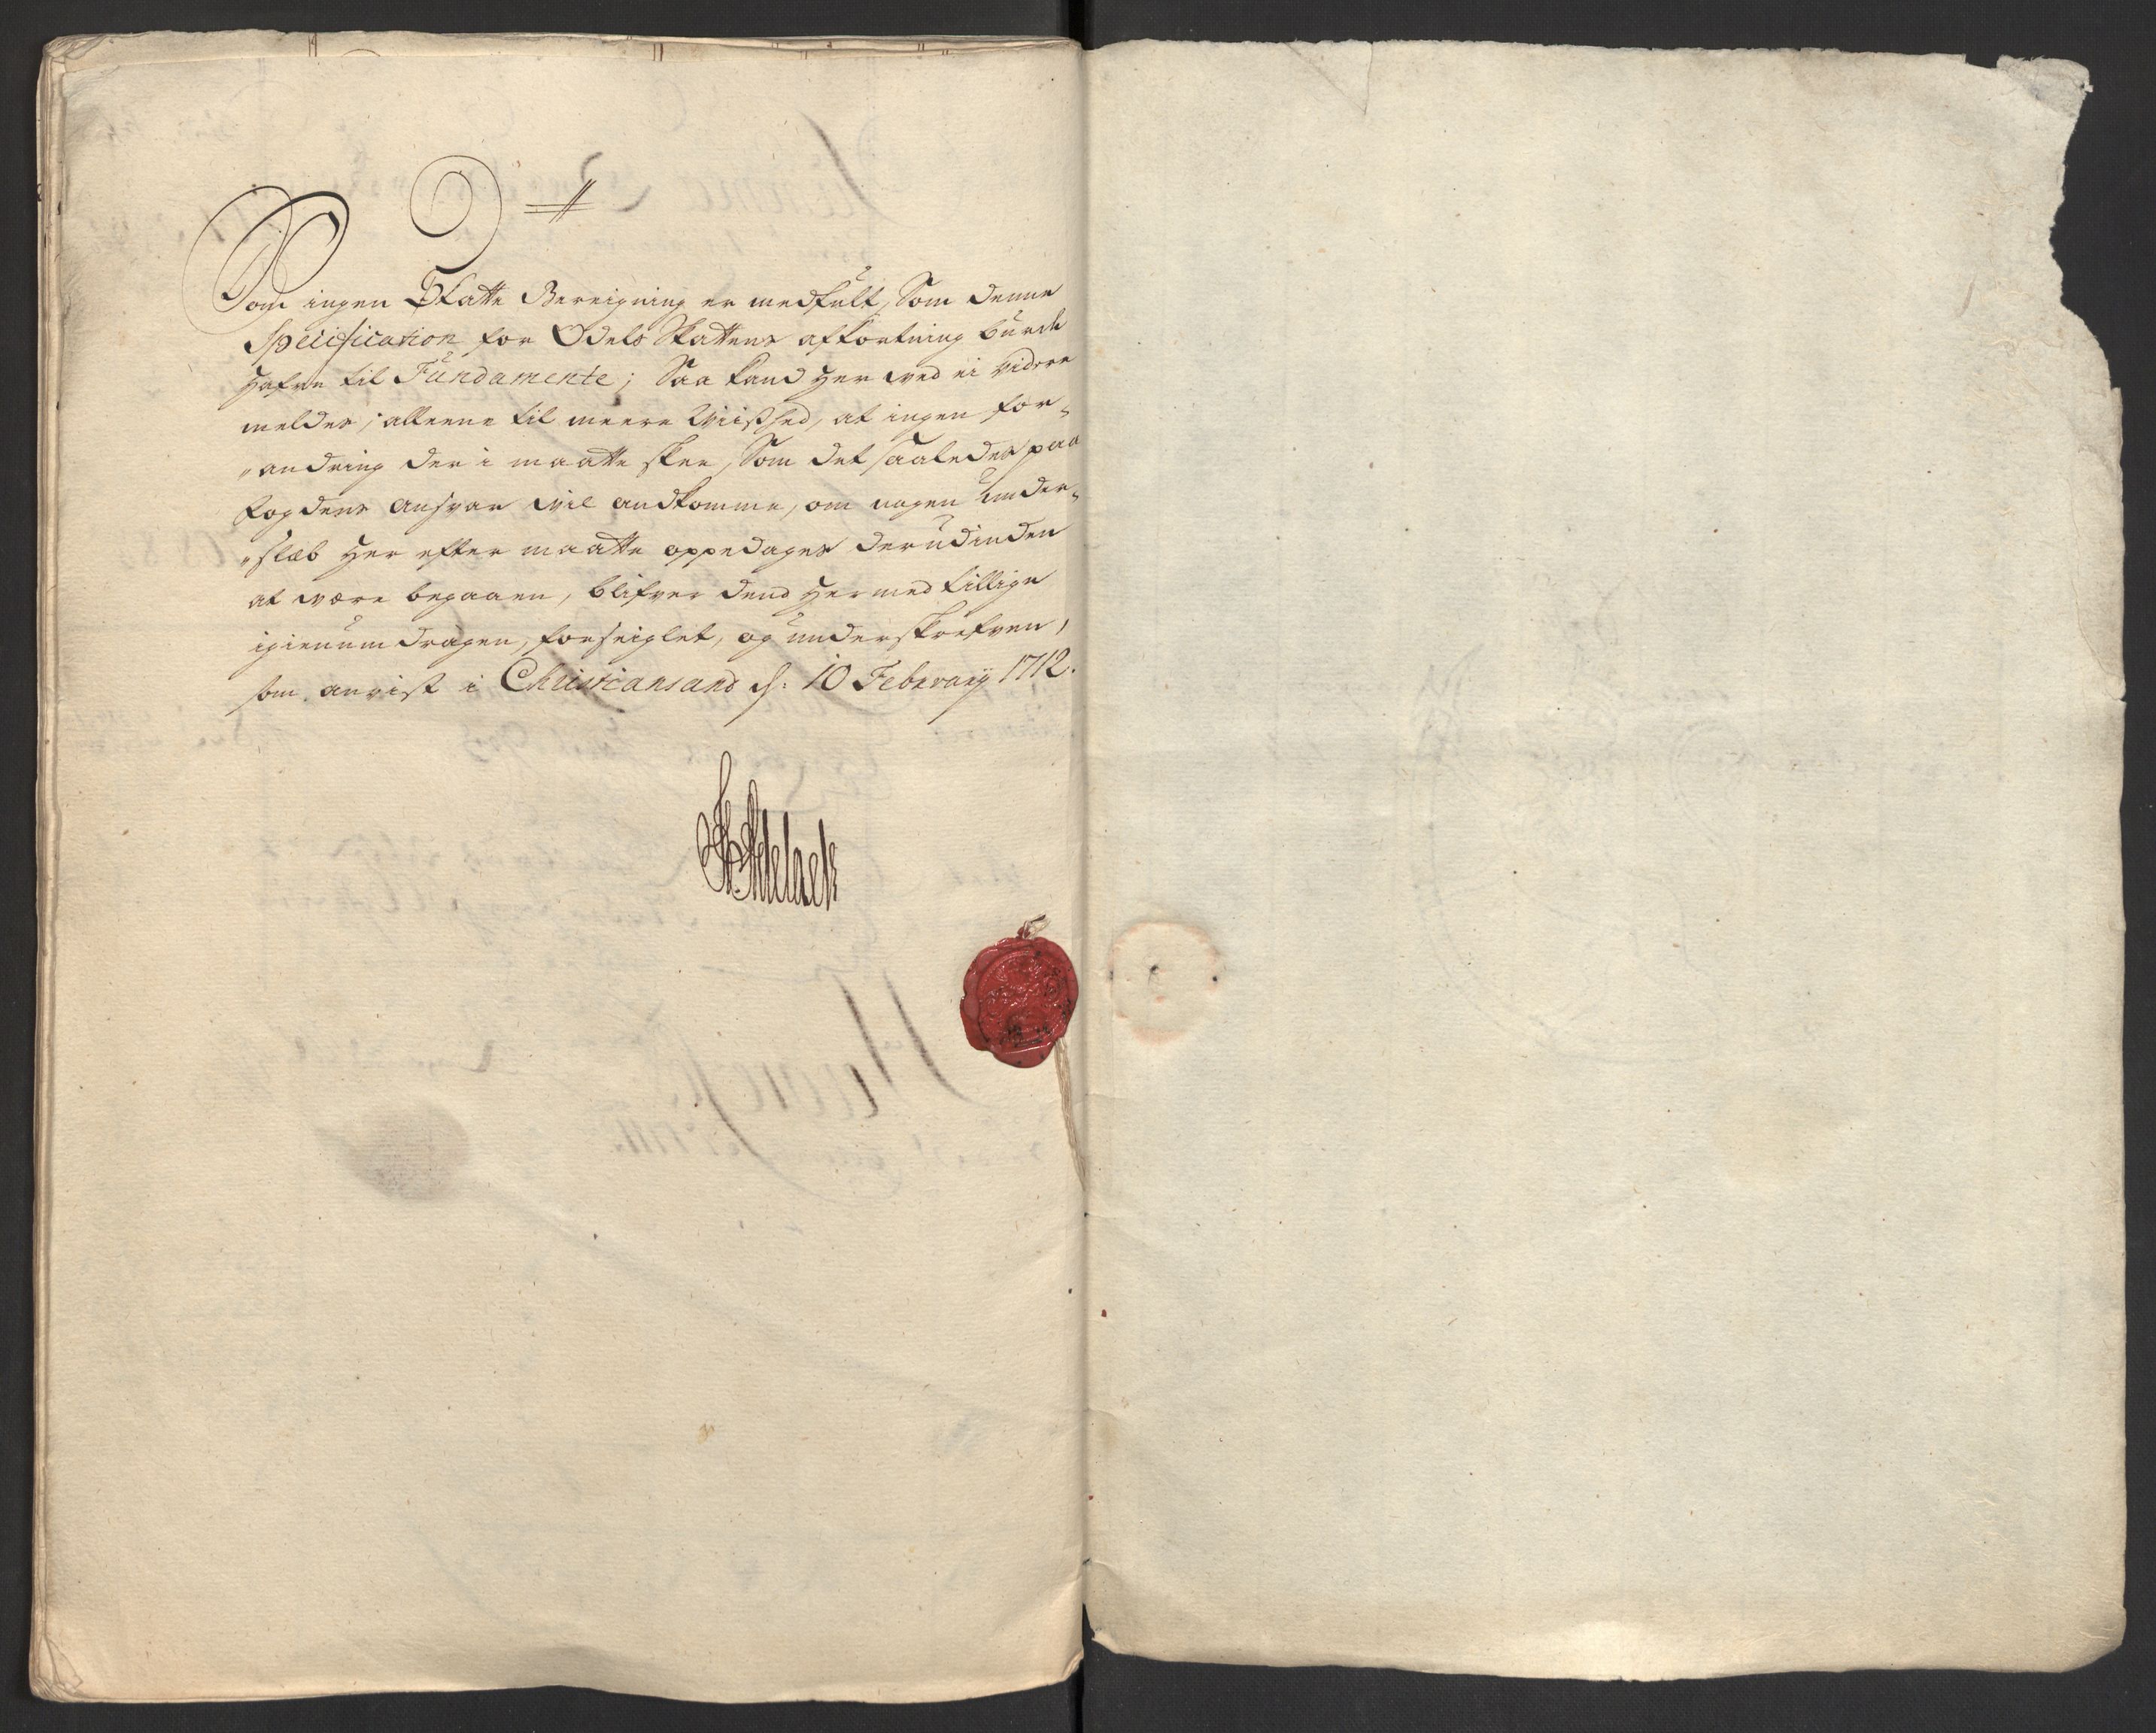 Som ingen Skatte Bereigning er medfult, Som denne
Specification for Odels Skattens afkortning burde
hafve til Fundamente; Saa kand her ved ei videre
meldes, alleene til meere Viished, at ingen for-
andring der i maatte skee, Som det saaledes paa
fogdens ansvar vil andkomme, om nogen under-
slæb her efter maatte oppedages derudinden
at være begaaen, blifver dend hermed tillige
igiennem dragen, forseiglet, og underskrefven,
som anvist i Christiansand d: 10 Februarij 1712.